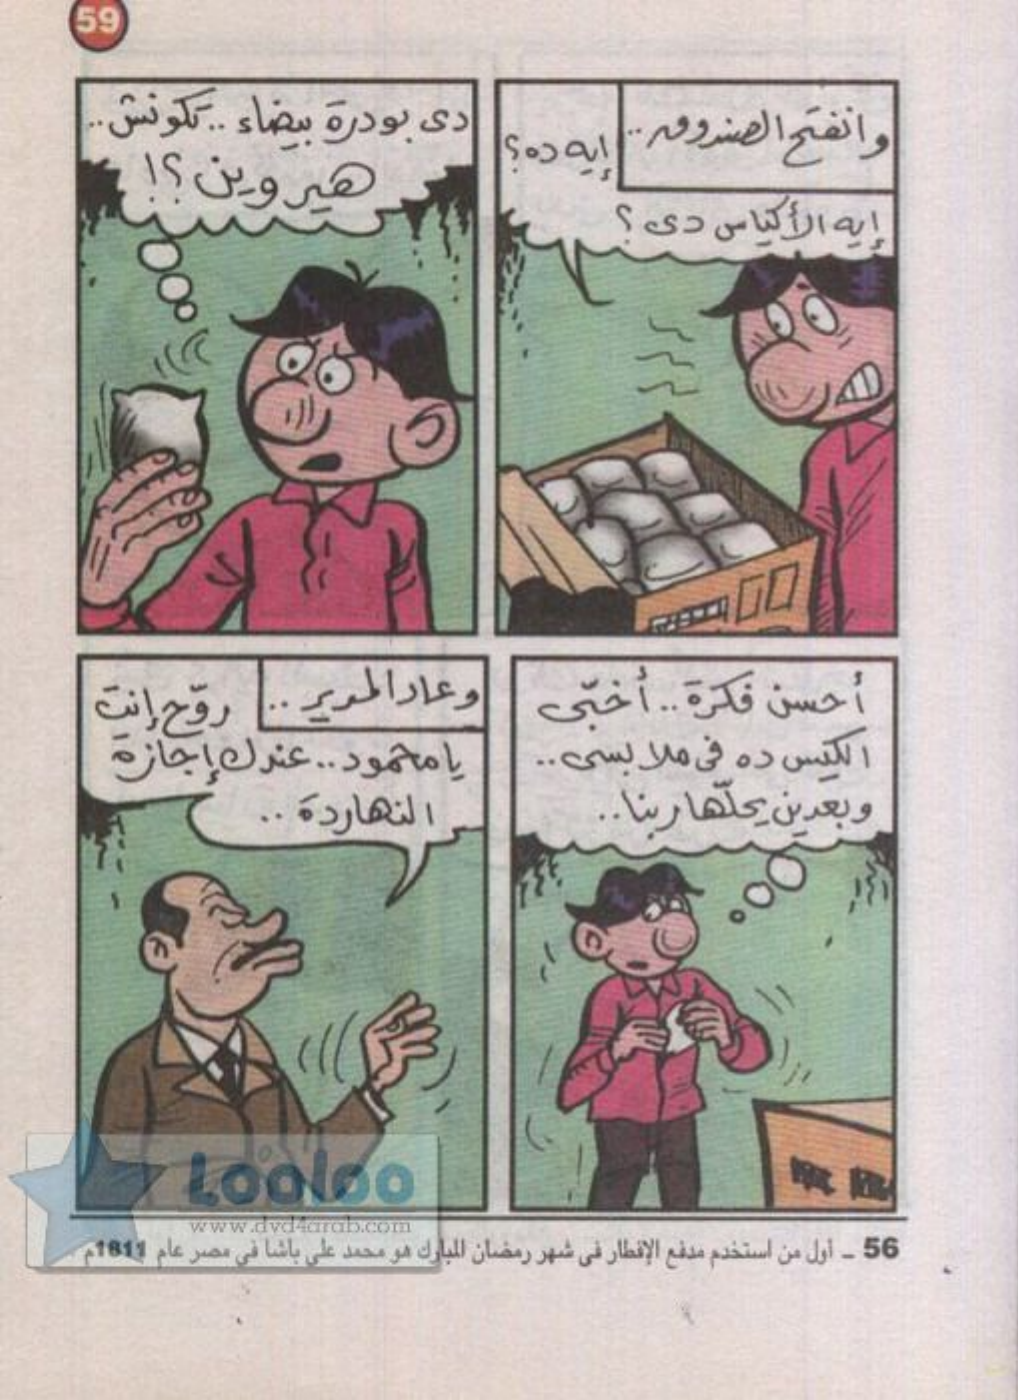 59
وانفتح الصندوق..
إيه ده؟
إيه الأكياس دى؟
دى بودرة بيضاء.. تكونش..
هيروين؟!
أحسن فكرة.. أخبّى
الكيس ده فى ملابسى..
وبعدين يحلّها ربنا..
وعاد المدير..
روّح إنت
يا محمود.. عندك إجازة
النهاردة..
Looloo
www.dvd4arab.com
56 ـ أول من استخدم مدفع الإفطار فى شهر رمضان المبارك هو محمد على باشا في مصر عام 1811م.